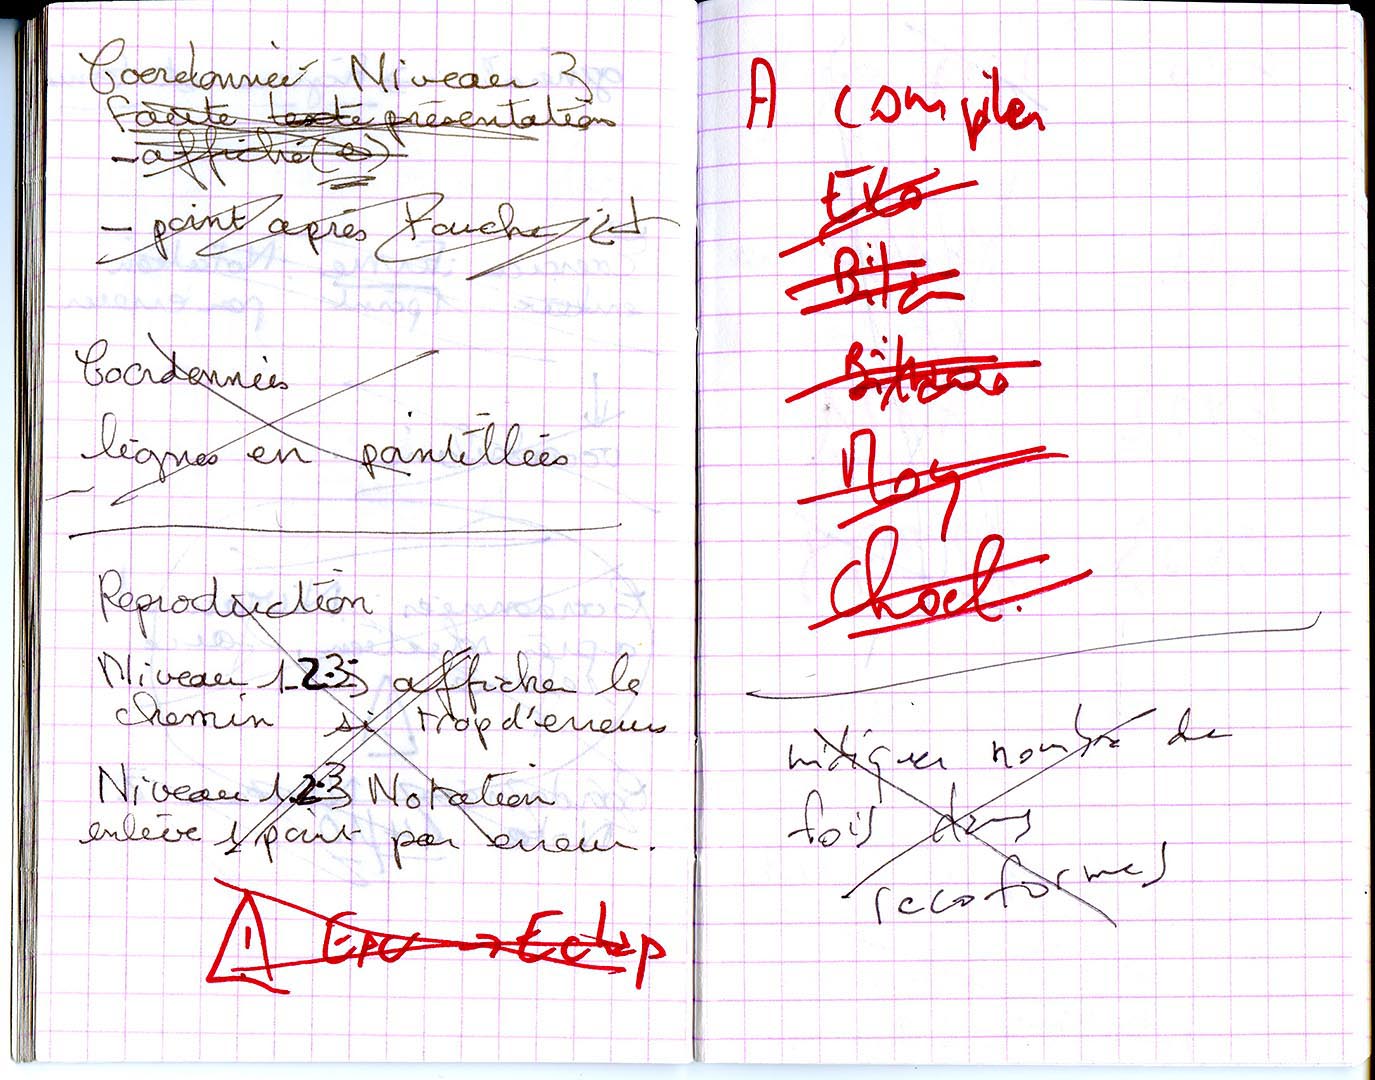 Coordonnées Niveau 3
Faute texte présentation
- affiché(e)
- point après Touche
Coordonnées
lignes en pointillées
Reproduction
Niveau 1-2-3 afficher le
chemin si trop d'erreurs
Niveau 1 2 3 Notation
enlève 1 point par erreur.
! EPC → Eclap
A compiler
Eko
Moy
Choct.
indiquer nombre de
fois dans
recoformes